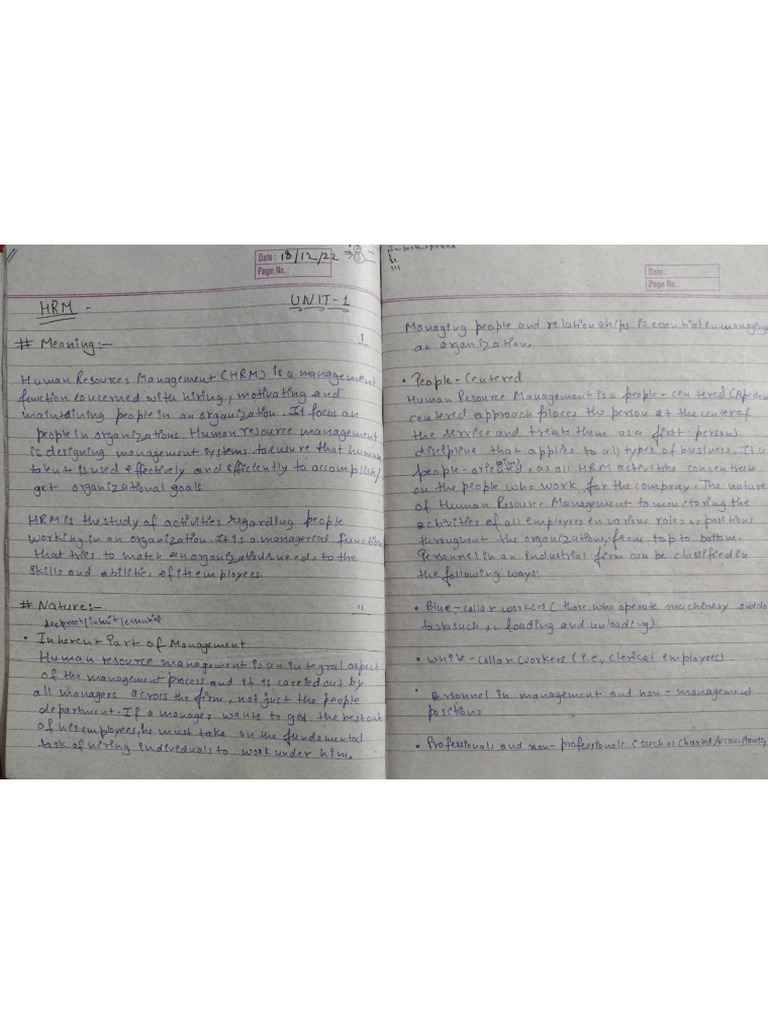 Date: 18/12/22
Page No.:
HRM - UNIT-1
# Meaning:-
Human Resources Management (HRM) is a management
function concerned with hiring, motivating and
maintaining people in an organization. It focus on
people in organizations. Human resource management
is designing management systems to ensure that human
talent is used effectively and efficiently to accomplish
get organizational goals
HRM is the study of activities regarding people
working in an organization. It is a managerial function
that tries to match an organization's needs to the
skills and abilities of its employees.
# Nature:-
• Inherent Part of Management
Human resource management is an integral aspect
of the management process and it is carried out by
all managers across the firm, not just the people
department. If a manager wants to get the best out
of his employees, he must take on the fundamental
task of hiring individuals to work under him.
Date:
Page No.:
Managing people and relationships is essential in managing
an organization.
• People-Centered
Human Resource Management is a people-centered
centered approach places the person at the center of
the service and treats them as a first-person)
discipline that applies to all types of business. It is
people-oriented, as all HRM activities concentrate
on the people who work for the company. The nature
of Human Resource Management to monitoring the
activities of all employees in various roles or positions
throughout the organization, from top to bottom.
Personnel in an industrial firm can be classified in
the following ways:
• Blue-collar workers (those who operate machinery and do
tasks such as loading and unloading)
• White-collar workers (i.e., clerical employees)
• Personnel in management and non-management
positions
• Professionals and non-professionals (such as Charted Accountants,